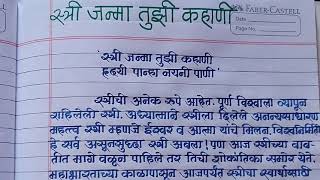 स्त्री जन्मा तुझी कहाणी
FABER-CASTELL
Date
Page No.
'स्त्री जन्मा तुझी कहाणी
हृदयी पान्हा नयनी पाणी'
स्त्रीची अनेक रुपे आहेत. पूर्ण विश्वाला व्यापून
राहिलेली स्त्री. अध्यात्माने स्त्रीला दिलेले अनन्यसाधारण
महत्व स्त्री म्हणजे ईश्वर व आत्मा यांचे मिलन. विश्वनिर्मिती
हे सर्व असूनसुद्धा स्त्री अबला! पण आज स्त्रीच्या बाब-
तीत मागे वळून पाहिले तर तिची शोकांतिका समोर येते.
महाभारताच्या काळापासून आजपर्यंत स्त्रीचा स्वार्थासाठी